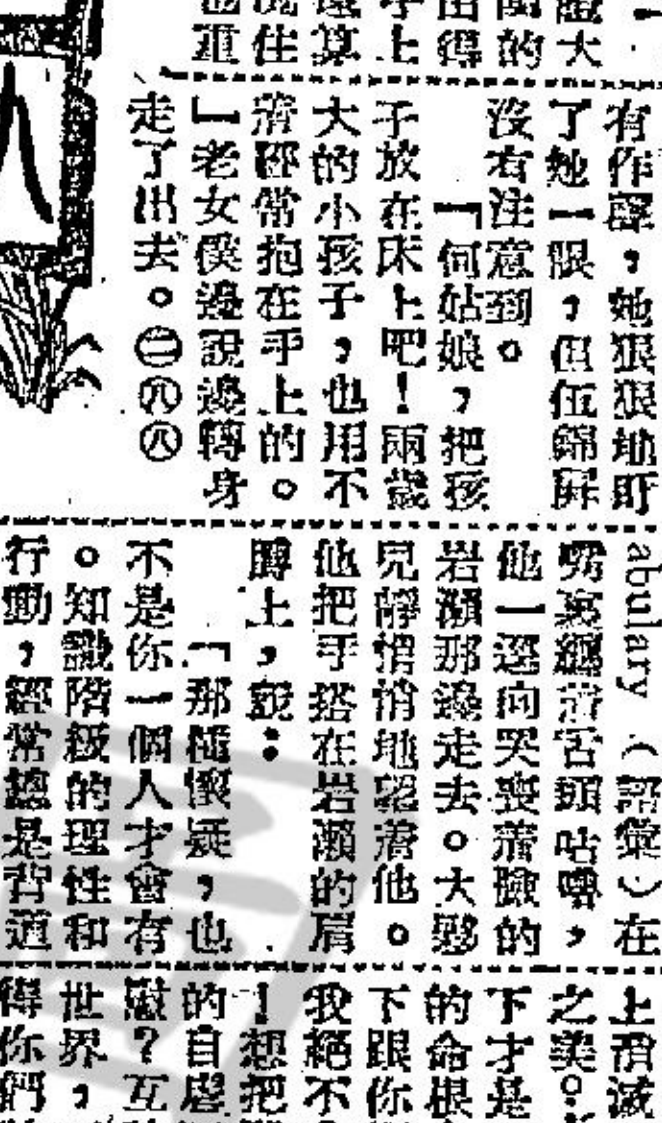 證大
間的
由得
手上
還算
况住
重
有作聲，她狠狠地盯
了她一眼，但伍錦屏
沒有注意到。
「何姑娘，把孩
子放在床上吧！兩歲
大的小孩子，也用不
着經常抱在手上的。
」老女僕邊說邊轉身
走了出去。㊁㊇㊇
abulary（語彙）在
嘴裏纏着舌頭咕嚕，
他一逕向哭喪着臉的
岩瀨那邊走去。大夥
兒靜悄悄地望着他。
他把手搭在岩瀨的肩
膊上，說：
「那種懷疑，也
不是你一個人才會有
。知識階級的理性和
行動，經常總是背道
上消滅
之美。
下才是
的命根
下跟你
我絕不
！想把
的自虐
？互
世界，
得你們